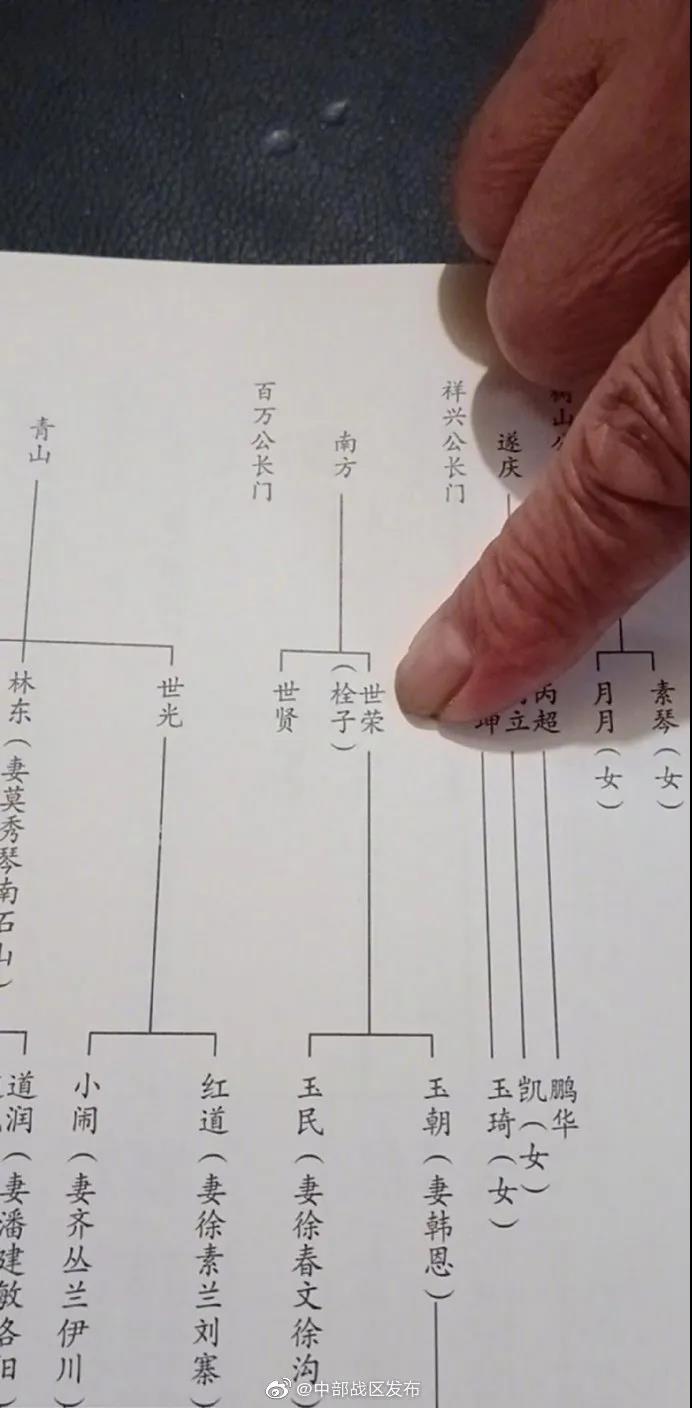 遂庆
祥兴公长门
南方
百万公长门
青山
素琴(女)
月月(女)
超
立
世荣
(栓子)
世贤
世光
林东(妻莫秀琴南石山)
鹏华
凯(女)
玉琦(女)
玉朝(妻韩恩)
玉民(妻徐春文徐沟)
红道(妻徐素兰刘寨)
小闹(妻齐丛兰伊川)
道润(妻潘建敏洛阳
@中部战区发布